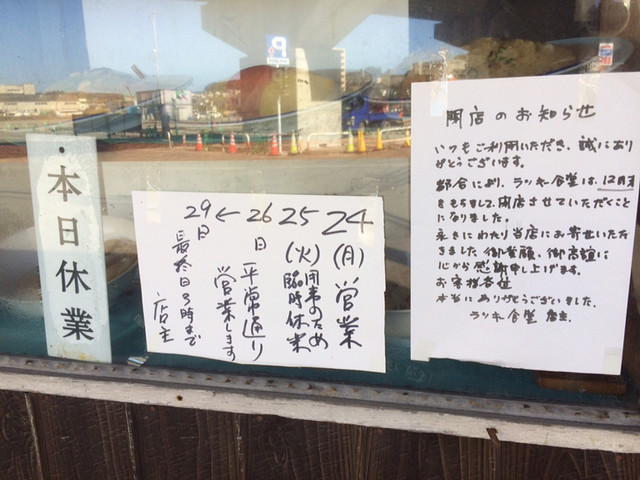 本日休業
24(月)営業
25(火)用事のため
臨時休業
26日平常通り
営業します
29日
最終日3時まで
店主
閉店のお知らせ
いつもご利用いただき、誠にあり
がとうございます。
都合により、ラッキー食堂は、12月末
をもちまして閉店させていただくこと
になりました。
永きにわたり当店にお寄せいただ
きました御愛顧、御高誼に
心から感謝申し上げます。
お客様各位
本当にありがとうございました。
ラッキー食堂 店主.
P